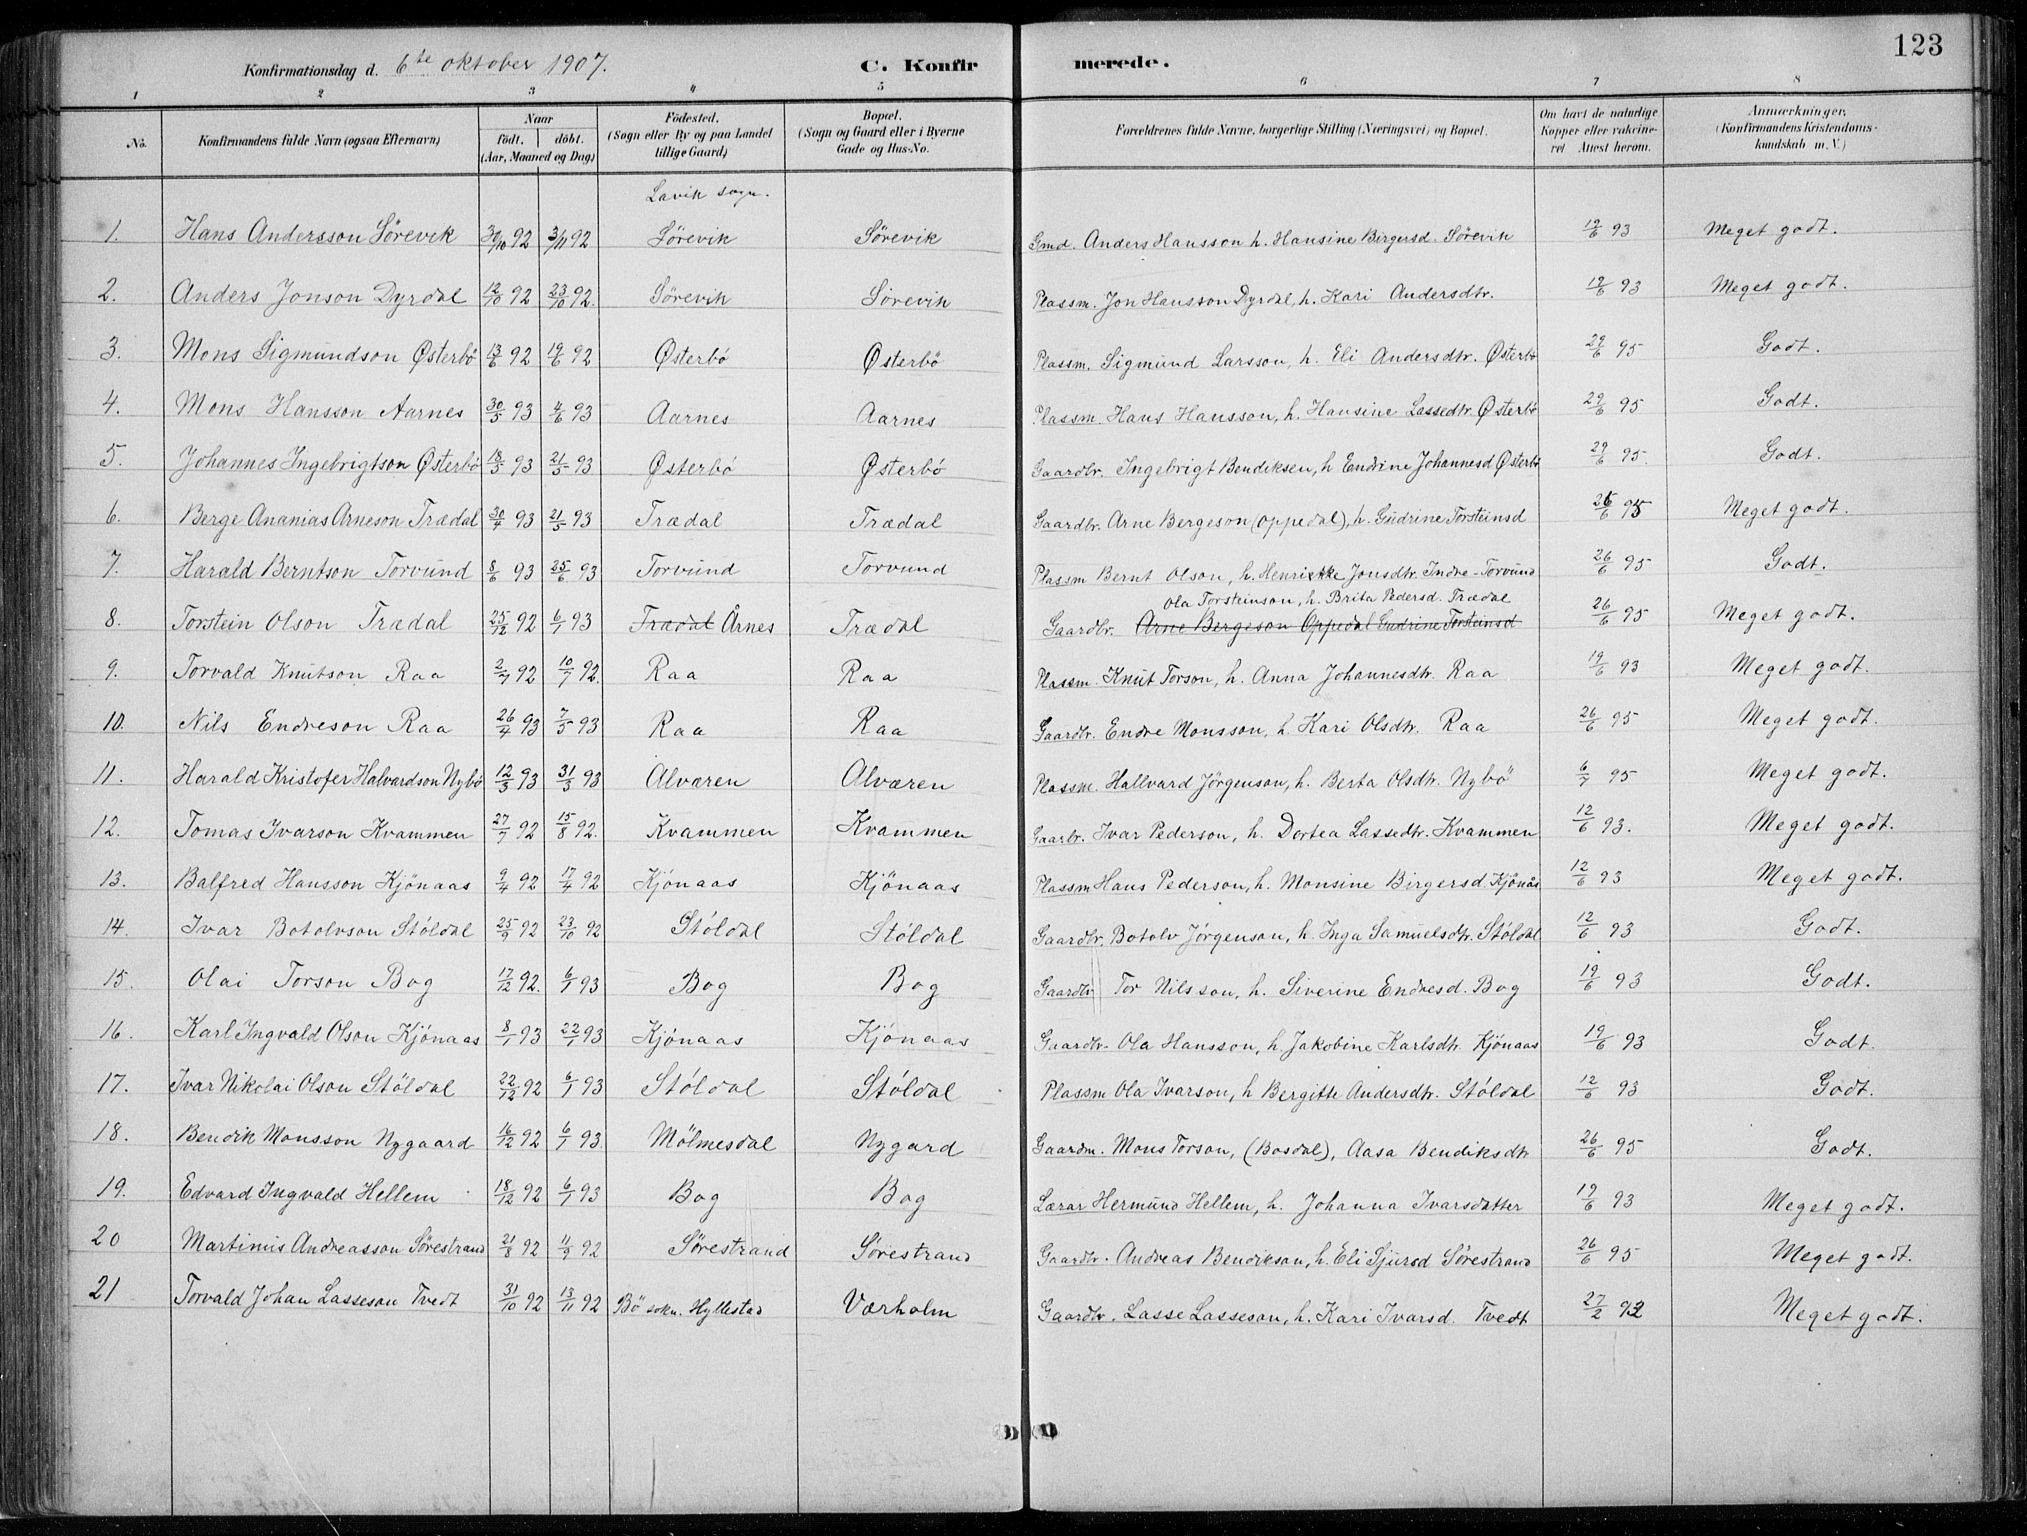 123
Konfirmationsdag d. 6te oktober 1907. C. Konfirmerede.
1 2 3 4 5 6 7 8
No. Konfirmandens fulde Navn (ogsaa Efternavn) Naar født. døbt. (Aar, Maaned og Dag) Fødested. (Sogn eller By og paa Landet tillige Gaard) Bopæl. (Sogn og Gaard eller i Byerne Gade og Hus-No. Forældrenes fulde Navne, borgerlige Stilling (Næringsvei) og Bopæl. Om havt de naturlige Kopper eller vakcineret Attest herom. Anmærkninger. (Konfirmandens Kristendomskundskab m. V.)
Lavik sogn.
1. Hans Andersson Sörevik 30/10 92 3/11 92 Sörevik Sörevik Gmd. Anders Hansson h. Hansine Birgersd. Sörevik 19/6 93 Meget godt.
2. Anders Jonson Dyrdal 12/10 92 23/10 92. Sörevik Sörevik Plassm. Jon Hansson Dyrdal, h. Kari Andersdtr. 19/6 93 Meget godt.
3. Mons Sigmundson Østerbö 13/6 92 19/6 92 Østerbö Østerbö Plassm. Sigmund Larsson, h. Eli Andersdtr. Østerbö 29/6 95 Godt.
4. Mons Hansson Aarnes 30/5 93 4/6 93 Aarnes Aarnes Plassm. Hans Hansson, h. Hansine Lassedtr. Østerbö 29/6 95 Godt.
5. Johannes Ingebrigtson Østerbö 18/5 93 21/5 93 Østerbö Østerbö Gaardbr. Ingebrigt Bendiksen, h Endrine Johannesd Østerbö 29/6 95. Godt.
6. Berge Ananias Arneson Trædal 30/4 93 21/5 93 Trædal Trædal Gaardbr. Arne Bergeson (Oppedal), h. Gudrine Torsteinsd 26/6 95 Meget godt.
7. Harald Berntson Torvund 8/6 93 25/6 93 Torvund Torvund Plassm Bernt Olson, h. Henrikke Jonsdtr. Indre-Torvund 26/6 95 Godt.
Ola Torsteinson, h. Brita Pedersd. Trædal
8. Torstein Olson Trædal 25/12 92 6/1 93 Trædal Årnes Trædal Gaardbr. Arne Bergeson Oppedal Gudrine Torsteinsd 26/6 95 Meget godt.
9. Torvald Knutson Raa 2/7 92 10/7 92. Raa Raa Plassm. Knut Torson, h. Anna Johannesdtr. Raa 19/6 93 Meget godt.
10. Nils Endreson Raa 26/4 93 7/5 93 Raa Raa Gaardbr. Endre Monsson, h. Kari Olsdtr. Raa 26/6 95 Meget godt.
11. Harald Kristofer Halvardson Nybö 12/3 93 31/3 93 Alværen Alværen Plassm. Hallvard Jörgenson, h. Berta Olsdtr. Nybö 6/7 95 Meget godt.
12. Tomas Ivarson Kvammen 27/7 92 15/8 92. Kvammen Kvammen Gaarbr. Ivar Pederson, h. Dortea Lassedtr. Kvammen 12/6 93. Meget godt.
13. Balfred Hansson Kjönaas 9/4 92 17/4 92 Kjönaas Kjönaas Plassm Hans Pederson, h. Monsine Birgersd. Kjönås 12/6 93 Meget godt.
14. Ivar Botolvson Stöldal 25/9 92 23/10 92 Stöldal Stöldal Gaardbr. Botolv Jörgenson, h. Inga Samuelsdtr. Stöldal 12/6 93 Godt.
15. Olai Torson Bog 17/12 92. 6/1 93 Bog Bog Gaardbr Tor Nilsson, h. Siverine Endresd. Bog 19/6 93 Godt.
16. Karl Ingvald Olson Kjönaas 8/1 93 22/1 93 Kjönaas Kjönaas Gaardbr. Ola Hansson, h. Jakobine Karlsdtr. Kjönaas 19/6 93 Godt.
17. Ivar Nikolai Olson Stöldal 22/12 92 6/1 93 Stöldal Stöldal Plassm Ola Ivarson, h Bergitte Andersdtr. Stöldal 12/6 93 Godt.
18. Bendik Monsson Nygaard 16/12 92 6/1 93 Mölmesdal Nygard Gaardm. Mons Torson, (Bosdal), Aasa Bendiksdtr 26/6 95 Godt.
19. Edvard Ingvald Hellem 18/12 92 6/1 93 Bog Bog Lærar Hermund Hellem, h. Johanna Ivarsdatter 19/6 93 Meget godt.
20 Martinus Andreasson Sörestrand 21/8 92 11/9 92 Sörestrand Sörestrand Gaardbr. Andreas Bendikson, h. Eli Sjursd Sörestrand 26/6 95 Meget godt.
21 Torvald Johan Lasseson Tvedt 31/10 92 13/11 92 Bö sokn. Hyllestad Værholm Gaardbr. Lasse Lasseson, h. Kari Ivarsd. Tvedt 27/2 92 Meget godt.